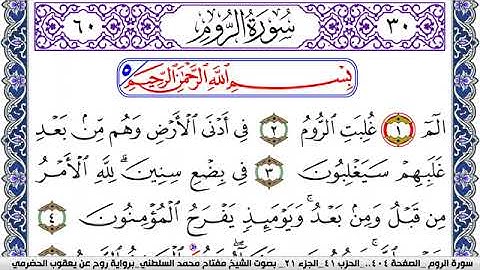 ٣٠ سُورَةُ الرُّومِ ٦٠
بِسْمِ اللَّهِ الرَّحْمَٰنِ الرَّحِيمِ
الٓمٓ ١ غُلِبَتِ ٱلرُّومُ ٢ فِىٓ أَدْنَى ٱلْأَرْضِ وَهُم مِّنۢ بَعْدِ
غَلَبِهِمْ سَيَغْلِبُونَ ٣ فِى بِضْعِ سِنِينَ ۗ لِلَّهِ ٱلْأَمْرُ
مِن قَبْلُ وَمِنۢ بَعْدُ ۚ وَيَوْمَئِذٍ يَفْرَحُ ٱلْمُؤْمِنُونَ ٤
سورة الروم_الصفحة ٤٠٤_الحزب ٤١_الجزء ٢١_بصوت الشيخ مفتاح محمد السلطني_برواية روح عن يعقوب الحضرمي